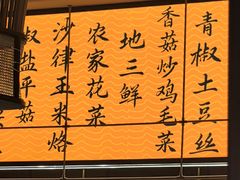 青椒土豆丝
香菇炒鸡毛菜
地三鲜
农家花菜
沙律玉米烙
椒盐平菇